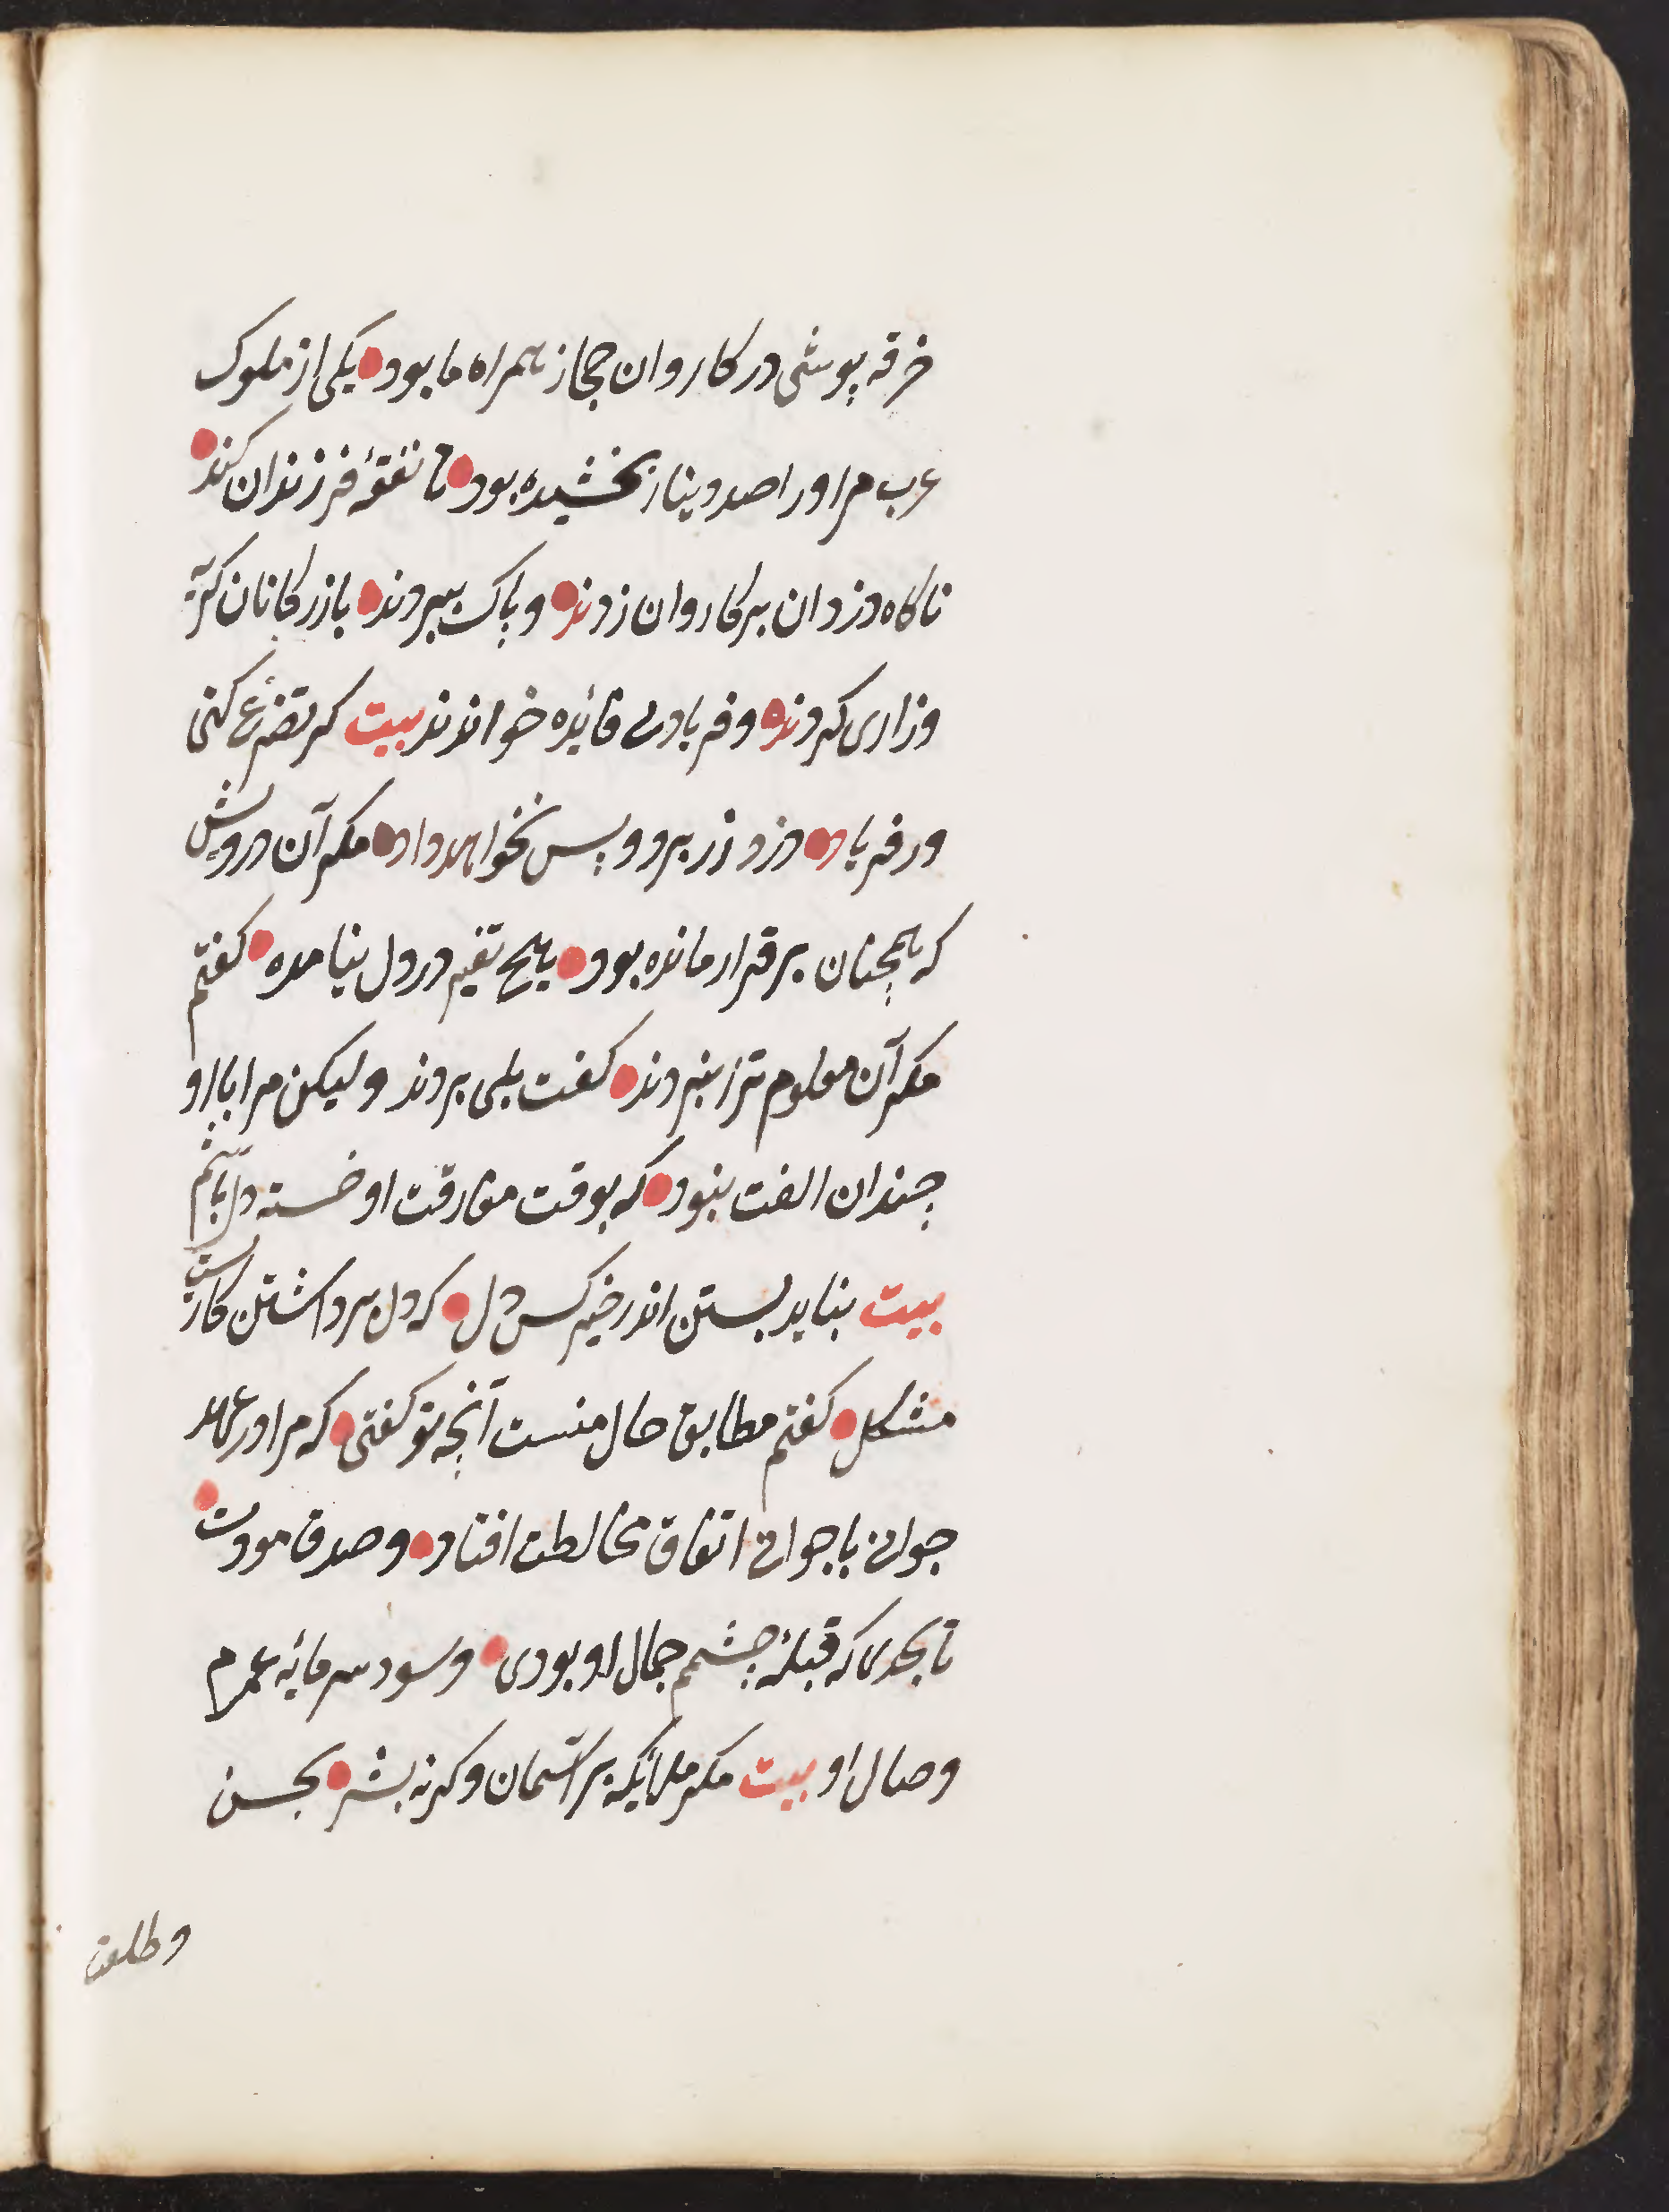 خرقه پوشی در کاروان حجاز همراه ما بود یکی از ملوک
عرب مر اورا صد دینار بخشیده بود تا نفقهٔ فرزندان کند
ناکاه دزدان بر کاروان زدند و پاک ببردند بازرکانان کریه
وزاری کردند و فریاد بی فائده خواندند بیت کر تضرع کنی
ور فریاد دزد زر برد و پس نخواهد داد مکر آن درویش
که همچنان بر قرار مانده بود هیچ تغیر در ول نیامده کفتم
مکر آن معلوم ترا نبردند کفت بلی بردند ولیکن مرا با او
چندان الفت نبود که بوقت مفارقت او خسته دل باشم
بیت نباید بستن اندر خیر کس دل که دل بر داشتن کاریست
مشکل کفتم مطابق حال منست آنچه تو کفتی که مرا در عهد
جوانی با جوانی اتفاق مخالطت افتاد و صدق مودت
تا بحدی که قبلهٔ چشمم جمال او بودی و سود سرمایهٔ عمرم
وصال او بیت مکر ملائکه بر آسمان وکرنه بشر بحسن
وطلعت